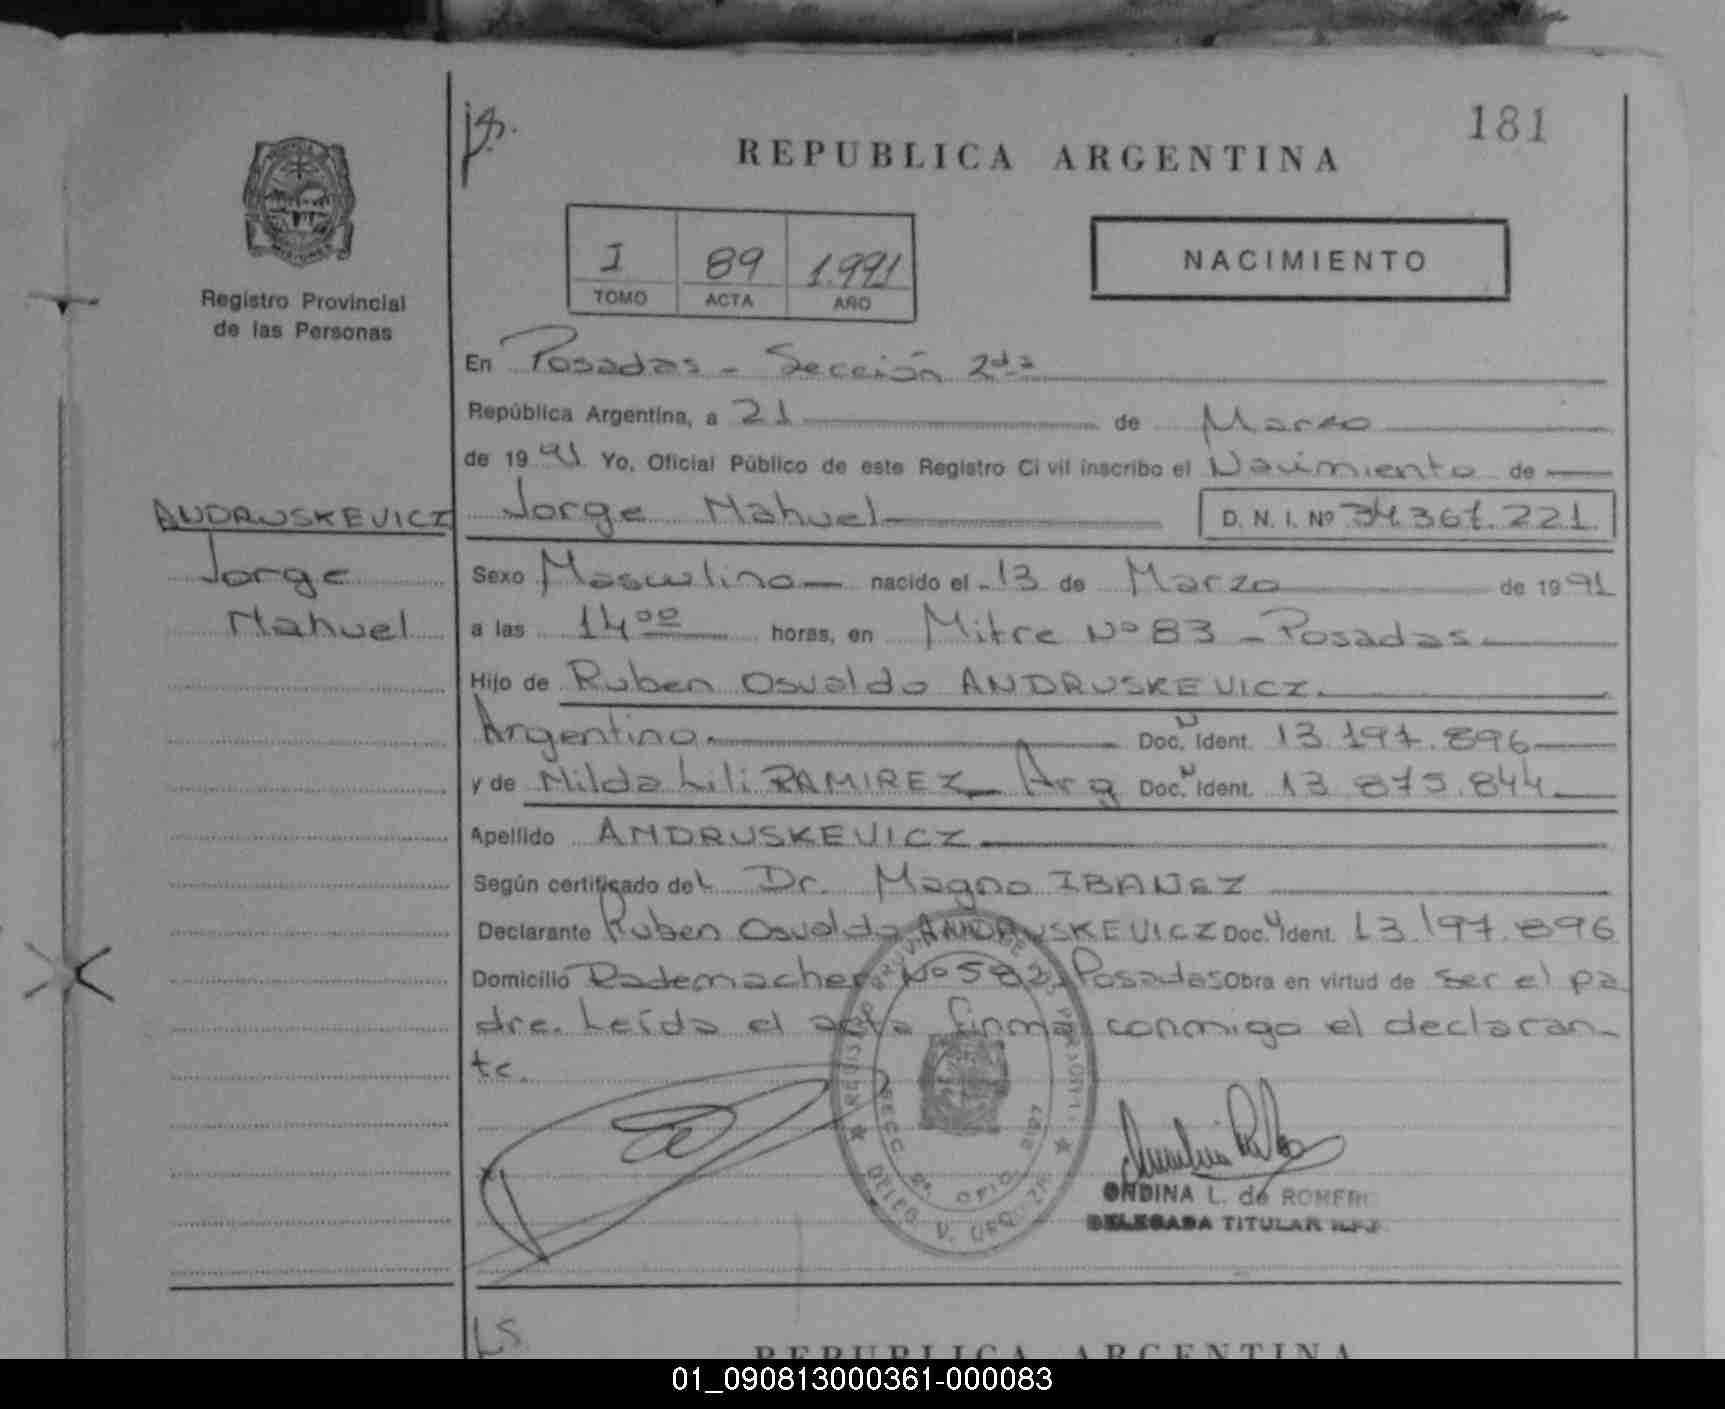 181
REPUBLICA ARGENTINA
I 89 1.991
TOMO ACTA AÑO
NACIMIENTO
Registro Provincial
de las Personas
En Posadas - Sección 2da
República Argentina, a 21 de Marzo
de 1991 Yo, Oficial Público de este Registro Civil inscribo el Nacimiento de
ANDRUSKEVICZ
Jorge
Nahuel
Jorge Nahuel D. N. I. Nº 34.367.221.
Sexo Masculino nacido el 13 de Marzo de 1991
a las 14 00 horas, en Mitre Nº 83 - Posadas
Hijo de Ruben Osvaldo ANDRUSKEVICZ.
Argentino. Doc. N Ident. 13.197.896
y de Nilda Lili RAMIREZ Arg Doc. N Ident. 13.875.844
Apellido ANDRUSKEVICZ
Según certificado del Dr. Magno IBAÑEZ
Declarante Ruben Osvaldo ANDRUSKEVICZ Doc. N Ident. 13.197.896
Domicilio Rademacher Nº 582 Posadas Obra en virtud de ser el pa
dre. Leída el acta firma conmigo el declaran-
te.
SECC. 2ª. OFIC.
DELEG. V. URQUIZA
ONDINA L. de ROMERO
DELEGADA TITULAR R.P.P.
LS.
REPUBLICA ARGENTINA
01_090813000361-000083